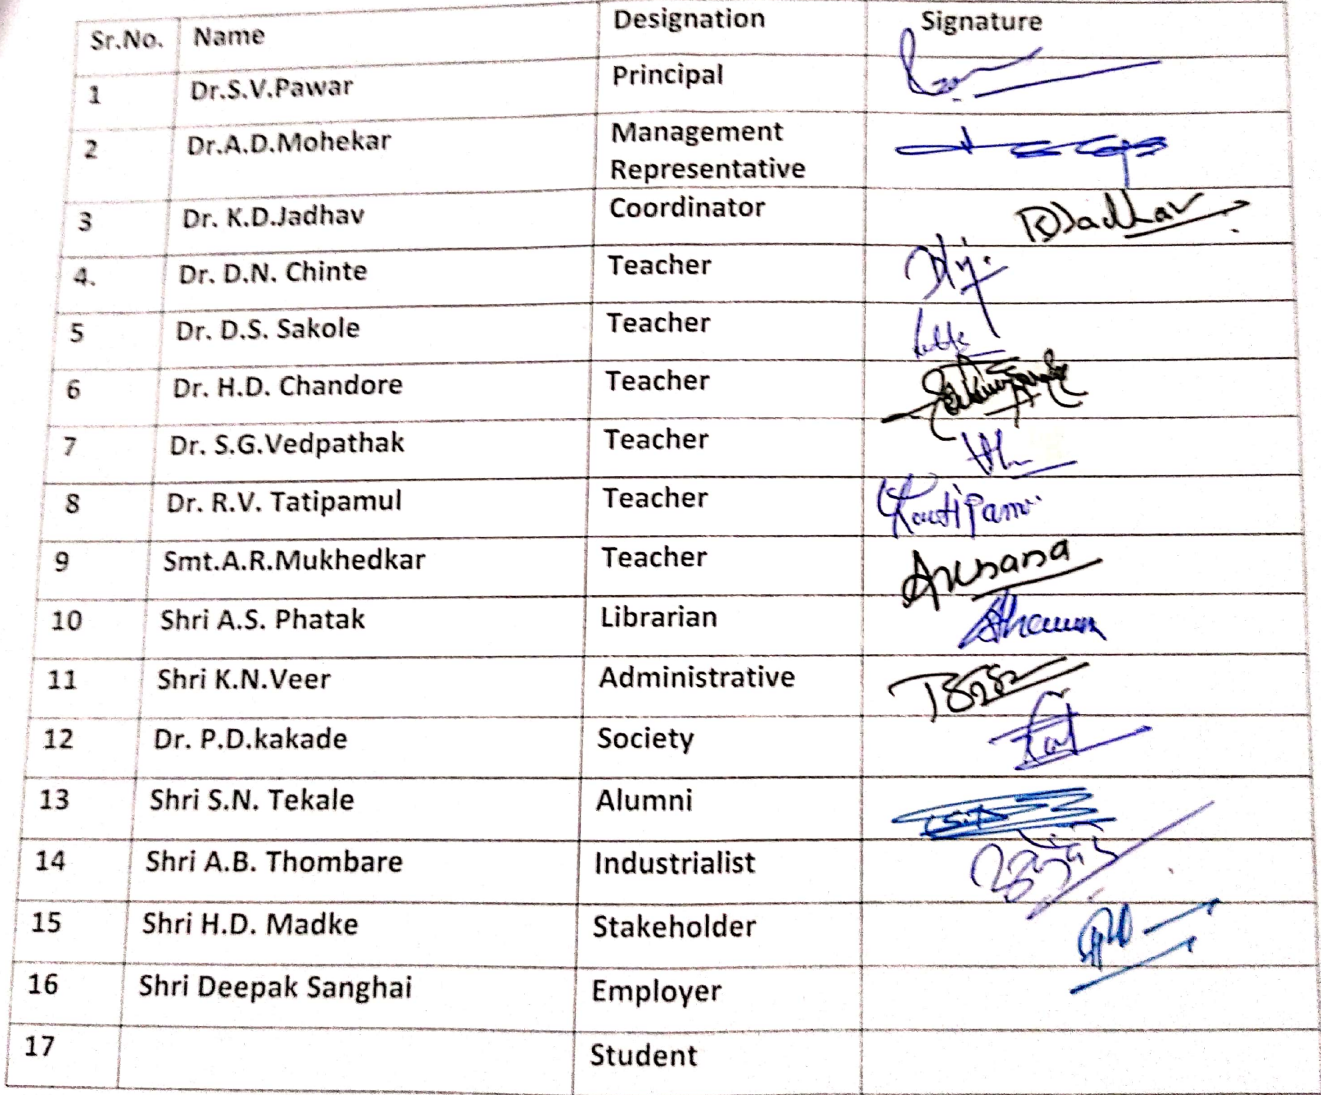 Sr.No. Name Designation Signature
1 Dr.S.V.Pawar Principal
2 Dr.A.D.Mohekar Management
Representative
3 Dr. K.D.Jadhav Coordinator KDJadhav
4. Dr. D.N. Chinte Teacher
5 Dr. D.S. Sakole Teacher
6 Dr. H.D. Chandore Teacher
7 Dr. S.G.Vedpathak Teacher
8 Dr. R.V. Tatipamul Teacher
9 Smt.A.R.Mukhedkar Teacher
10 Shri A.S. Phatak Librarian
11 Shri K.N.Veer Administrative
12 Dr. P.D.kakade Society
13 Shri S.N. Tekale Alumni
14 Shri A.B. Thombare Industrialist
15 Shri H.D. Madke Stakeholder
16 Shri Deepak Sanghai Employer
17 Student